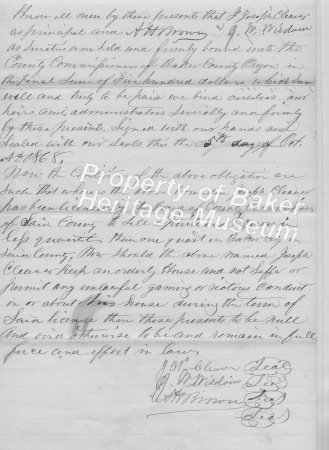 Know all men by these presents that I Joseph Cleaver
as principal and A H Brown & J. W. Wisdom
as Sureties am held and firmly bound unto the
County Commissioners of Baker County Oregon in
the final Sum of Five hundred dollars which Sum
well and truly to be paid we bind ourselves our
heirs and administrators Severally and firmly
by these presents. Signed with our hands and
Sealed with our Seals this the 5th day of Oct.
AD 1868.
Now the Condition of the above obligation are
Such that whereas the above Joseph Cleaver
has been licensed by the County
of Said County to Sell Spirituous liquors in
less quantity than one quart in Baker City in
Said County, Now Should the above named Joseph
Cleaver keep an orderly House and not Suffer or
permit any unlawful gaming or riotous Conduct
in or about his house during the term of
Said license then these presents to be null
and void otherwise to be and remain in full
force and effect in law.
J W Cleaver Seal
J. W. Wisdom Seal
A H Brown Seal
Seal
Property of Baker
Heritage Museum